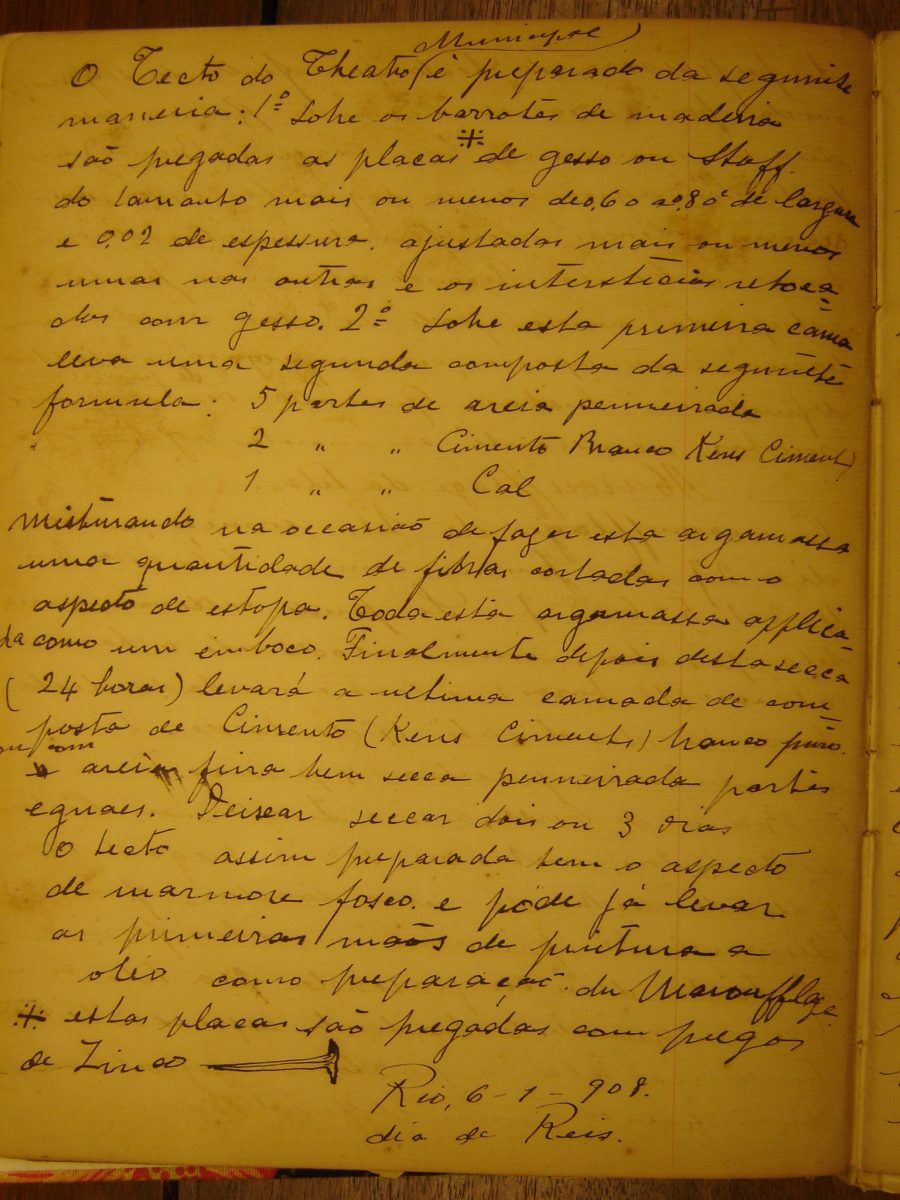 Municipal
O Tecto do Theatro ( é preparado da seguinte
maneira: 1º Sobre os barrotes de madeira
são pregadas as placas de gesso ou Staff.
do tamanho mais ou menos de 0,60 a 0,80 de largura
e 0,02 de espessura, ajustadas mais ou menos
umas nas outras e os interstícios retoca-
dos com gesso. 2º Sobre esta primeira cama
leva uma segunda composta da seguinte
formula: 5 partes de areia penneirada
2 " " Cimento Branco Kens Ciment)
1 " " Cal
Misturando na occasião de fazer esta argamassa
uma quantidade de fibras cortadas com o
aspecto de estopa. Toda esta argamassa applica-
da como um emboco. Finalmente depois desta secca
(24 horas) levará a ultima camada de com-
posta de Cimento (Kens Ciments) branco puro.
ou com
areia fina bem secca penneirada partes
eguaes. Deixar seccar dois ou 3 dias
O tecto assim preparada tem o aspecto
de marmore fosco. e póde já levar
as primeiras mãos de pintura a
oleo como preparação. du Marouflage
⁜ estas placas são pregadas com pregos
de Zinco
Rio, 6-1-908.
dia de Reis.